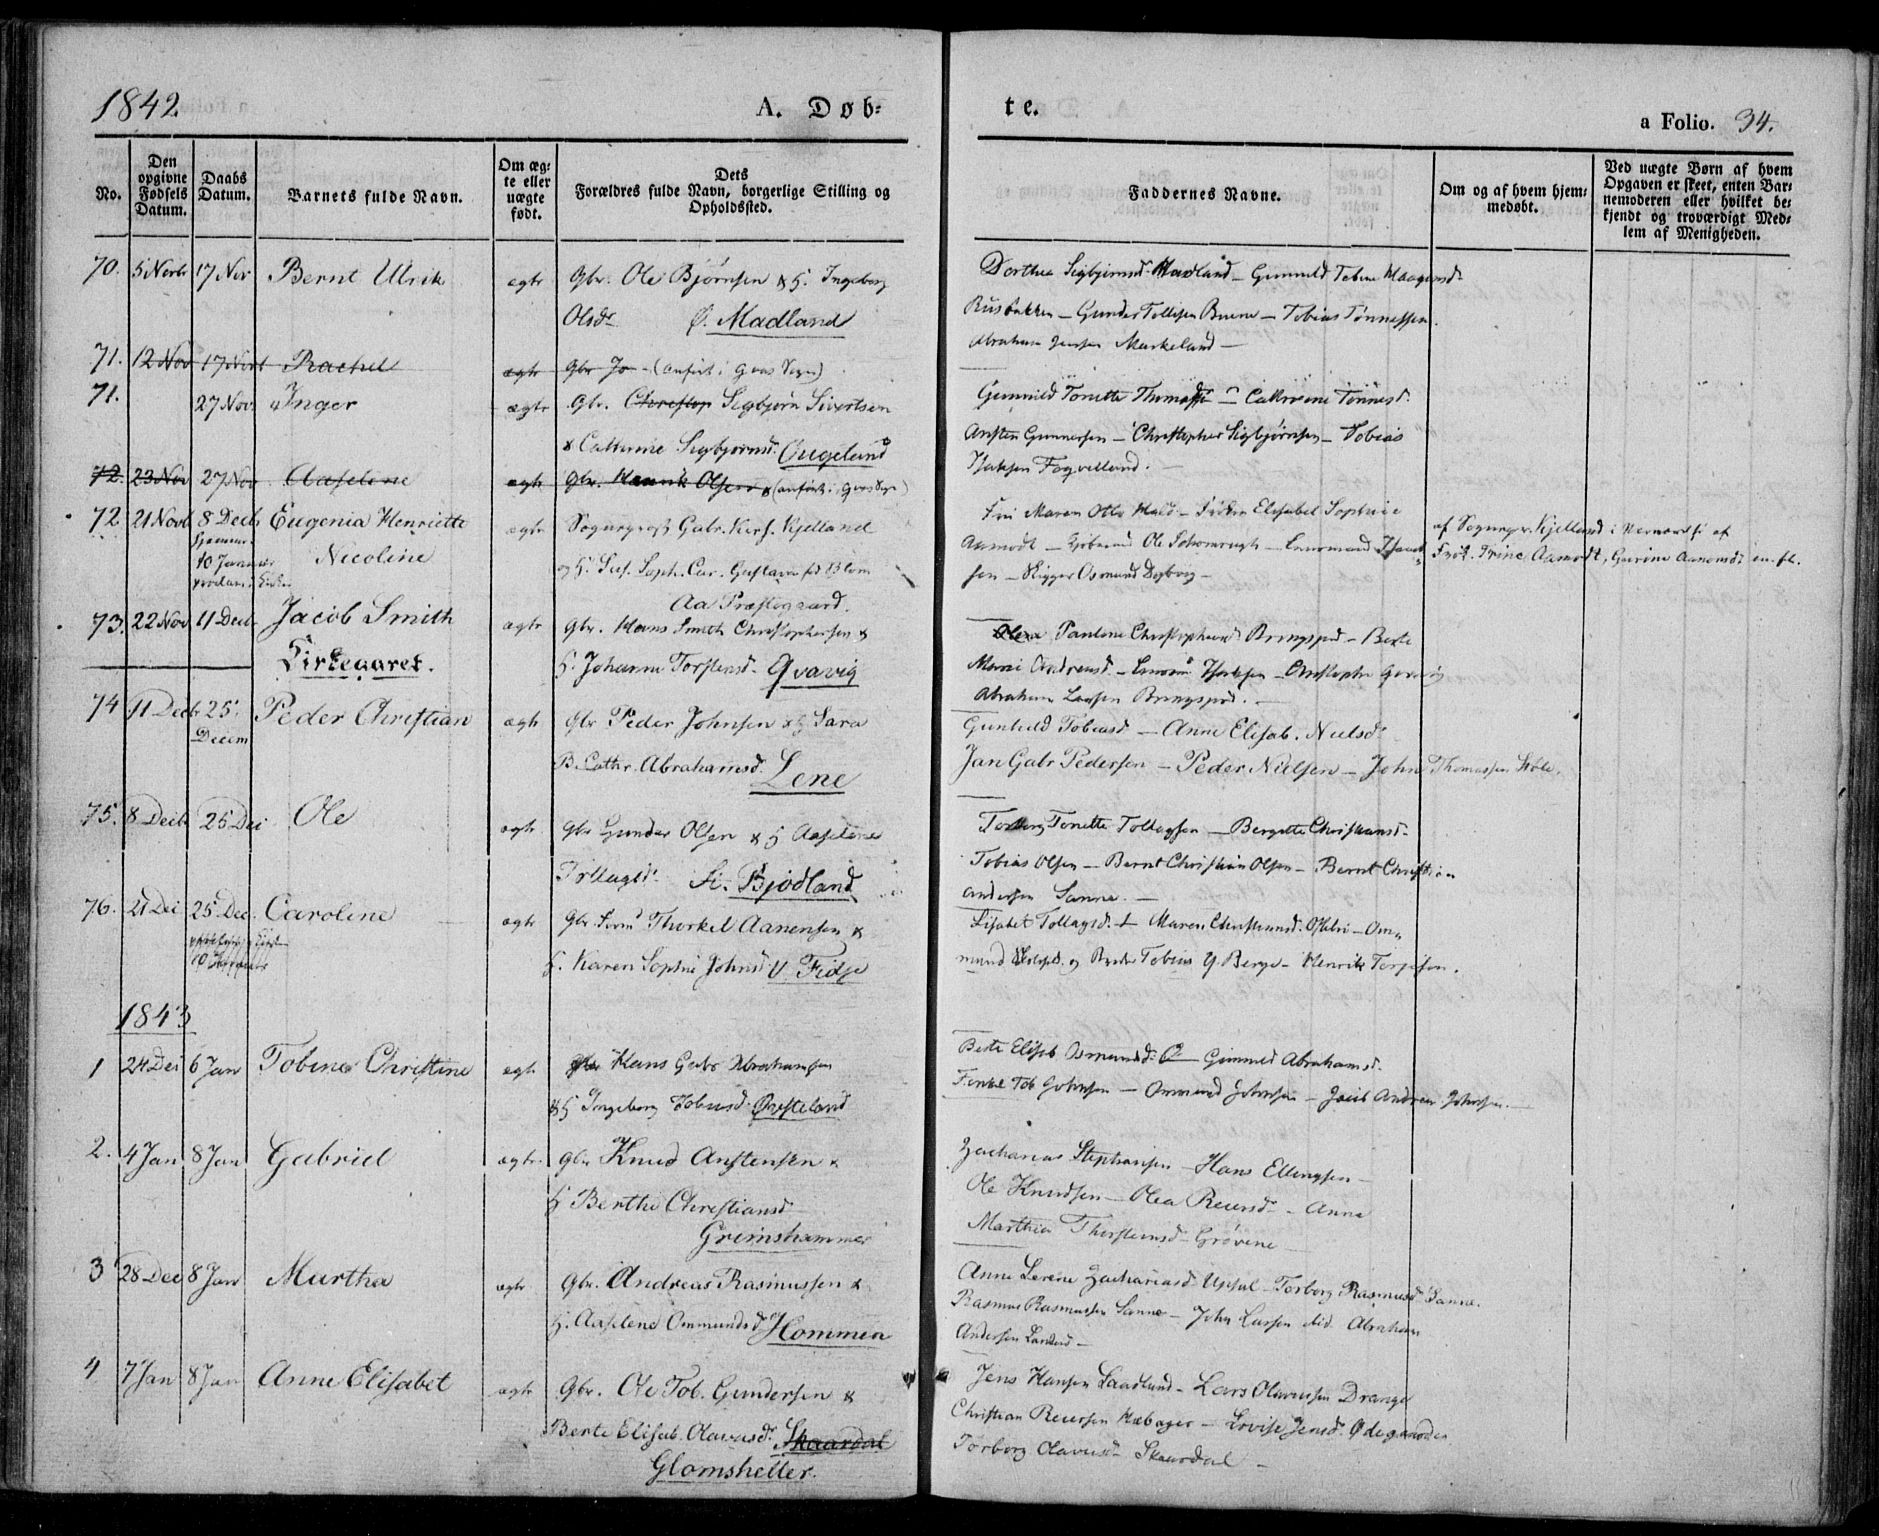 1842.
A. Døb-
te.
a Folio. 34.
No.
Den opgivne Fødsels Datum.
Daabs Datum.
Barnets fulde Navn.
Om ægte eller uægte født.
Dets Forældres fulde Navn, borgerlige Stilling og Opholdssted.
Faddernes Navne.
Om og af hvem hjemmedøbt.
Ved uægte Børn af hvem Opgaven er skeet, enten Barnemoderen eller hvilket bekjendt og troværdigt Medlem af Menigheden.
70. 5 Novbr 17 Nov Bernt Ulrik ægte Gbr. Ole Bjørnsen & H. Ingeborg
Olsdr Ø. Madland
Dorthea Sigbjørnsd. Madland – Gunnild Tobine Haagensd.
Rusbakken – Gunder Tollefsen Buene – Tobias Tønnessen
Abraham Jensen Markeland –
71. 12 Nov 17 Novb Rachel ægte Gbr Jo – (anført i Qvas Sogn)
71. 27 Nov Inger ægte Gbr. Christop Sigbjørn Sivertsen
& Cathrine Sigbjørnsd. Augeland
Gunnild Tonette Thomasd – Cathrine Tønnesd.
Ansten Gunnersen – Christopher Sigbjørnsen – Tobias
72. 23 Nov 27 Nov Aaselene ægte Gbr. Henrik Olsen & (anført i Qvas Sogn)
72 21 Novb 8 Decb Eugenia Henriette ægte Sogneprest Gabr. Kirs. Kjelland
Nicoline
10 Januar
og H. Sus. Soph. Car. Gustava fød Blom
Aa Præstegaard.
Maren Otto Hald – Frøken Elisabet Sophie
Aamodt – Ole Schomrugh – Lensmand Isaak
sen – Skipper Osmund Dybvig –
af Sognepr. Kjelland i Nærværelse af
Frøk. Trine Aamodt, Gurine Aanonsdr en. fl.
73. 22 Nov 11 Decb Jacob Smith ægte Gbr. Hans Smith Christophersen &
Kirkegaret.
H. Johanne Torstensd. Qvavig
Olena Pauline Christophersd Bringsjord – Berte
Marie Andreasd. – Isaksen – Christopher Qvavig
Abraham Larsen Bringsjord. –
74 11 Decbr 25. Decem Peder Christian ægte Gbr Peder Johnsen & H Sara
B. Cathr. Abrahamsd. Lene
Gunhild Tobiasd – Anne Elisab. Nielsd.
Jan Gabr Pedersen – Peder Nielsen – John Thomassen Støle.
75. 8 Decb 25 Dec Ole ægte Gbr Gunder Olsen & H Aaselene
Tollagsd. Li. Bjødland
Torborg Tonette Tollagsen – Bergitte Christiansd.
Tobias Olsen – Bernt Christian Olsen – Bernt Christian
Andersen Sanne. –
76. 21 Dec 25 Dec. Caroline ægte Gbr Thorkel Aanensen &
H. Karen Sophie Johnsd. V. Fidje
Lisabet Tollagsd. – Maren Christiansd. – Om-
mund og Tobias Y. Berge – Henrik Torjesen.
1843
1 24 Dec 6 Jan Tobine Christine ægte Gbr Hans Gabr Abrahamsen
& H Ingeborg Tobiasd. Øvsteland
Berte Elisab Osmundsd. – Gunnild Abrahamsd.
Tob Johnsen – Ommund Johnsen – Jacob Andreas Johnsen. –
2. 4 Jan 8 Jan Gabriel ægte. Gbr Knud Anstensen &
H Berthe Christiansd
Grimshammer
Zacharias Stephansen – Hans Ellingsen –
Ole Knudsen – Olea Reiersd. – Anne
Marthea Thorstensd – Grøvene –
3 28 Dec 8 Jan Martha ægte Gbr. Andreas Rasmussen &
H. Aaselene Ommundsd Hommen
Anne Serene Zachariasd Upsal – Torborg Rasmusd Sanne.
Rasmus Rasmussen Sanne – John Larsen ibid. Abraham
Andersen –
4 7 Jan 8 Jan Anne Elisabet ægte Gbr. Ole Tob. Gundersen &
Berte Elisab. Olavusd. Skaardal
Glomsheller.
Jens Hansen Saadland – Lars Olavussen Drange
Christian Reiersen – Lovise Jensd. Ødegaarden
Torborg Olavusd. Skaardal –